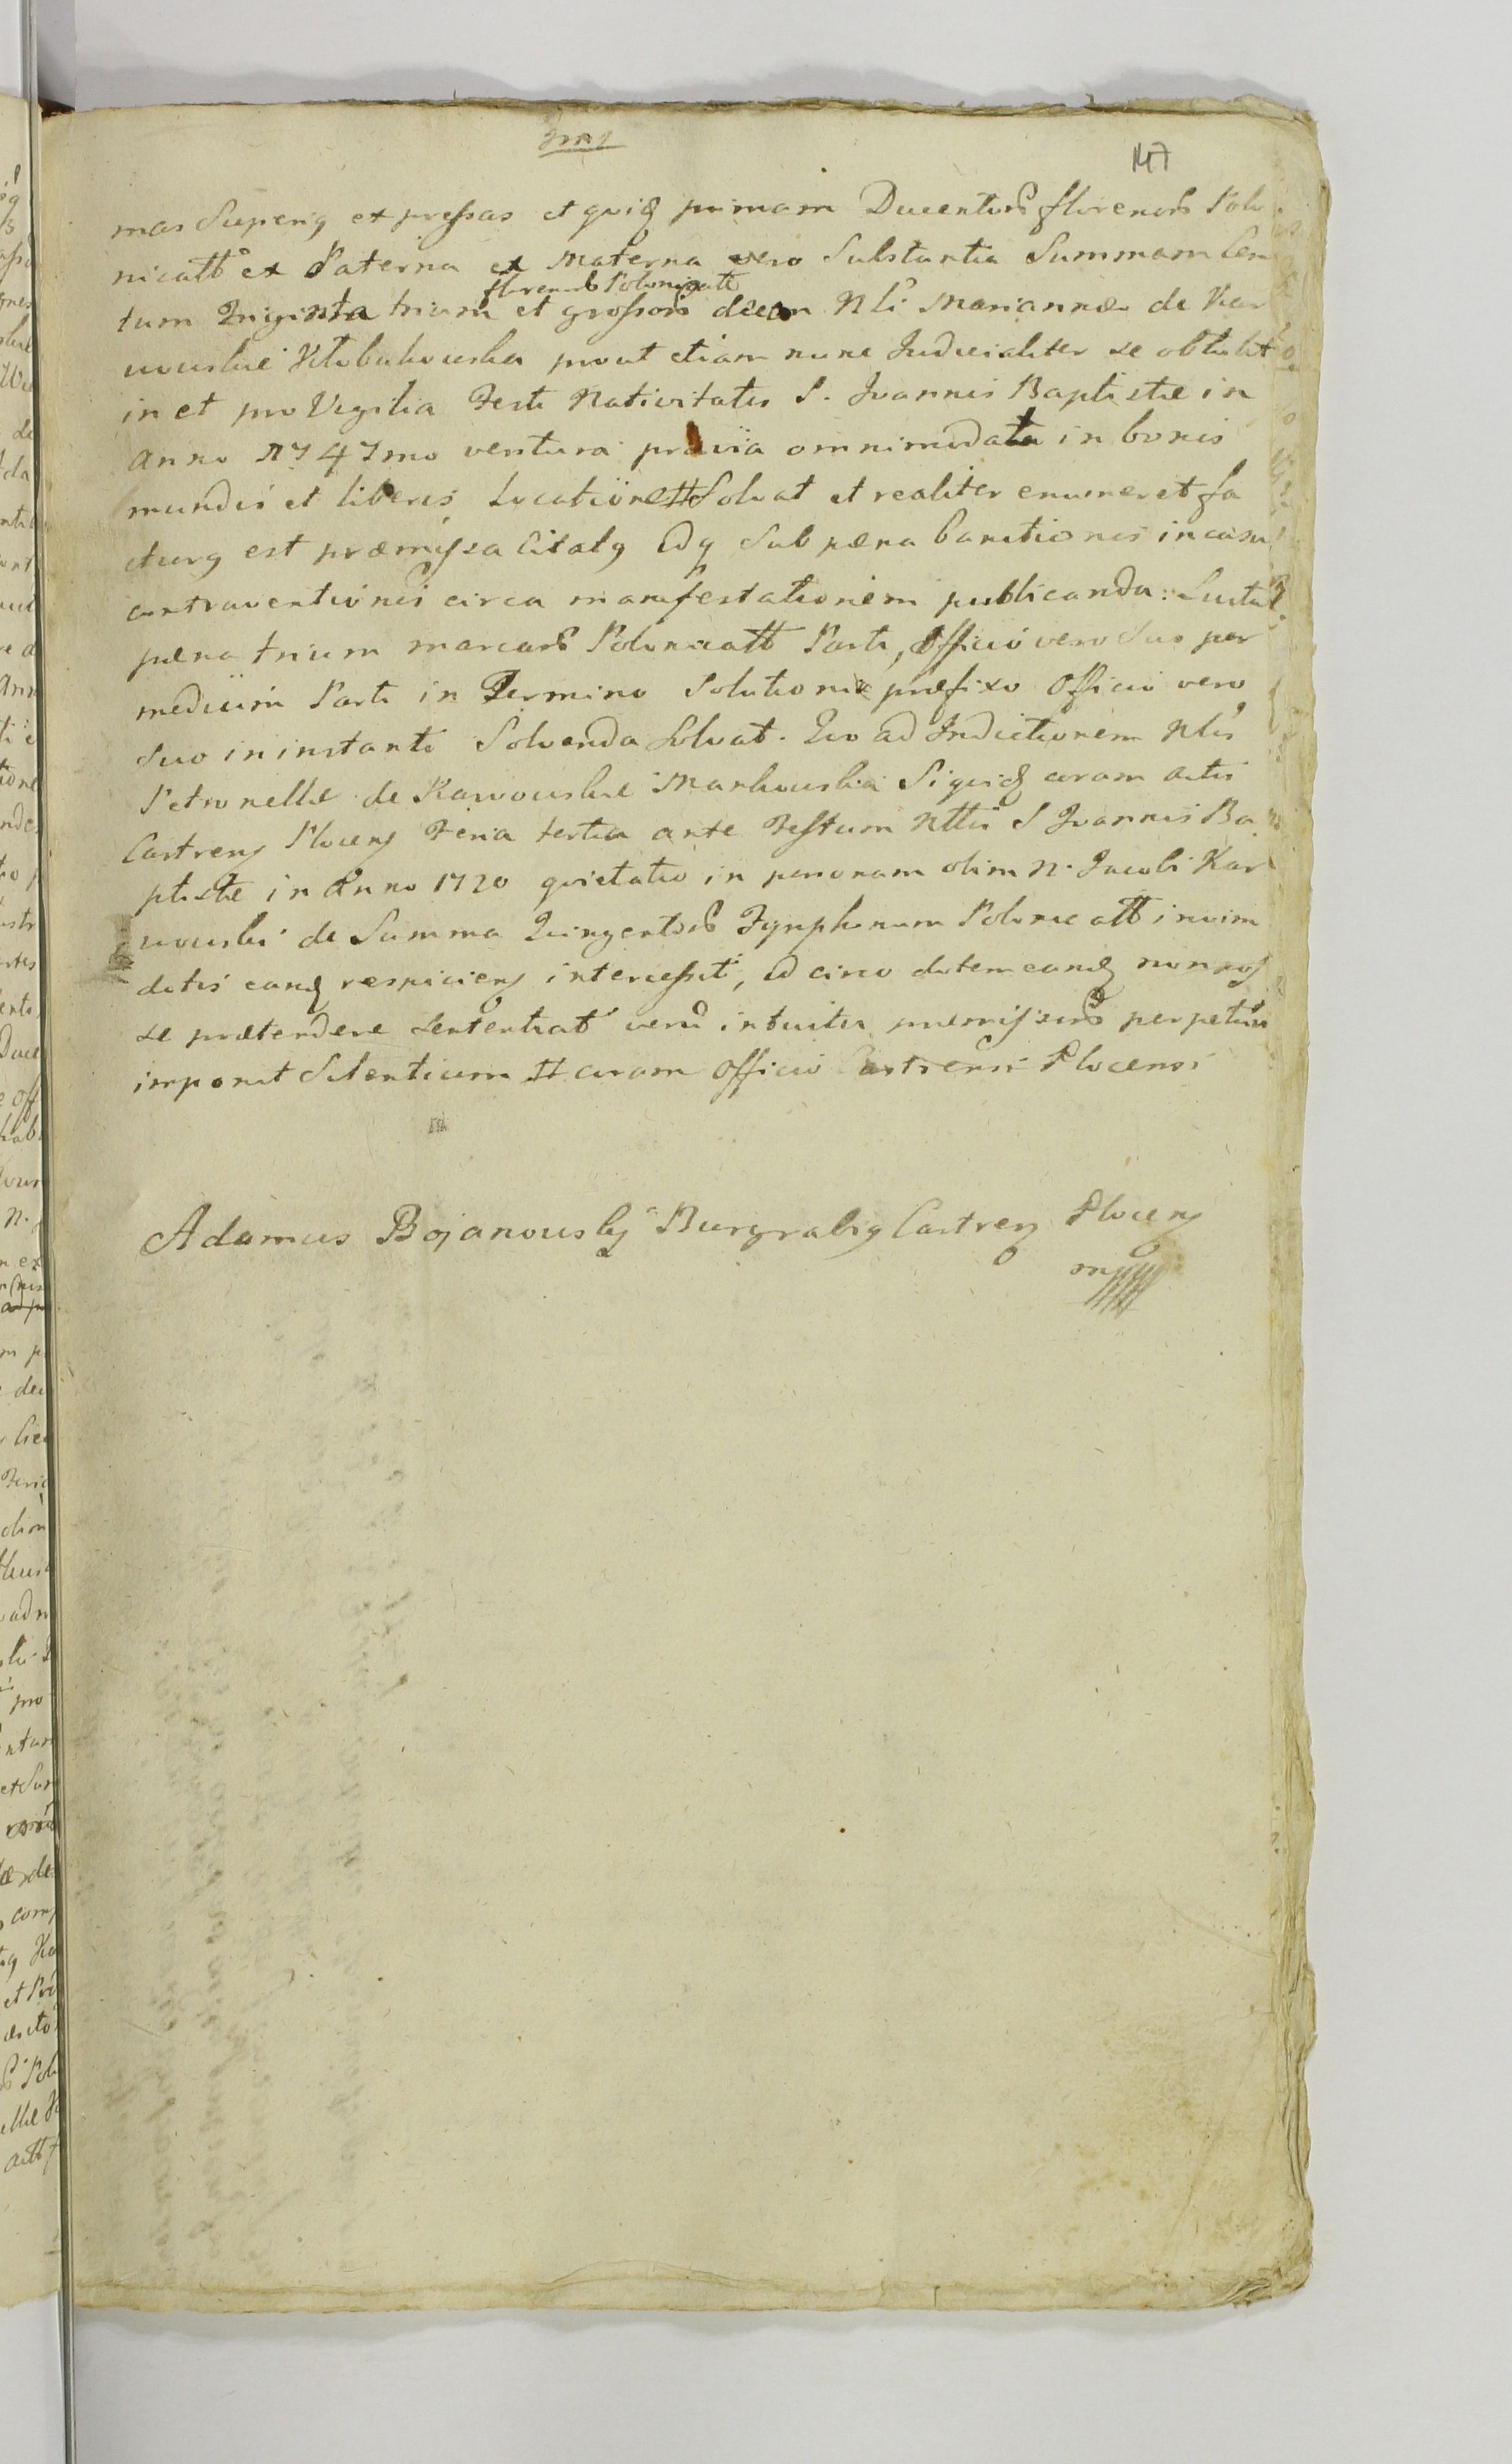 147
mas Superiq expressas et quidq primam Ducentorum florenorum Polo
nicatt ex Paterna ex Materna vero Substantia Summam Cen
florenorum Polonicatt
tum Triginta trium et grossorum decem Nli Mariannæ de Kar
wouskie prout etiam nunc Judicialiter se obtulit
in et pro Vigilia Festi Nativitatis S. Joannis Baptistæ in
Anno 1747mo ventura prævia omnimodata in bonis
mundis et liberis Locatione # Solvat et realiter enumeret fa
cturq est præmissa Citatq idq Sub pæna banitionis in casu
contraventionis circa manifestationem publicanda: Luita
pæna trium marcarum Polonicatt Parti, Officio vero Suo per
medium Parti in Termino Solutionis præfixo Officio vero
Suo in instanti Solvenda Solvat. Quo ad Indictionem Nlis
Petronellæ de Karwouskie Mankouska Siquidq coram actis
Castrenq Plocenq Feria tertia ante Festum Nttis S Joannis Ba
ptistæ in Anno 1720 quietatio in personam olim N. Jacobi Kar
wouski de Summa Quingentorum Tynphonum Polonicatt in vim
dotis eandq respicienq intercessit, id circo dotem eandq non pos
se prætendere sententiat verum intuitu præmissorum perpetuum
imponit Silentium # coram Officio Castrensi Plocensi
Adamus Bojanousky Burgrabiq Castrenq Plocenq
mp